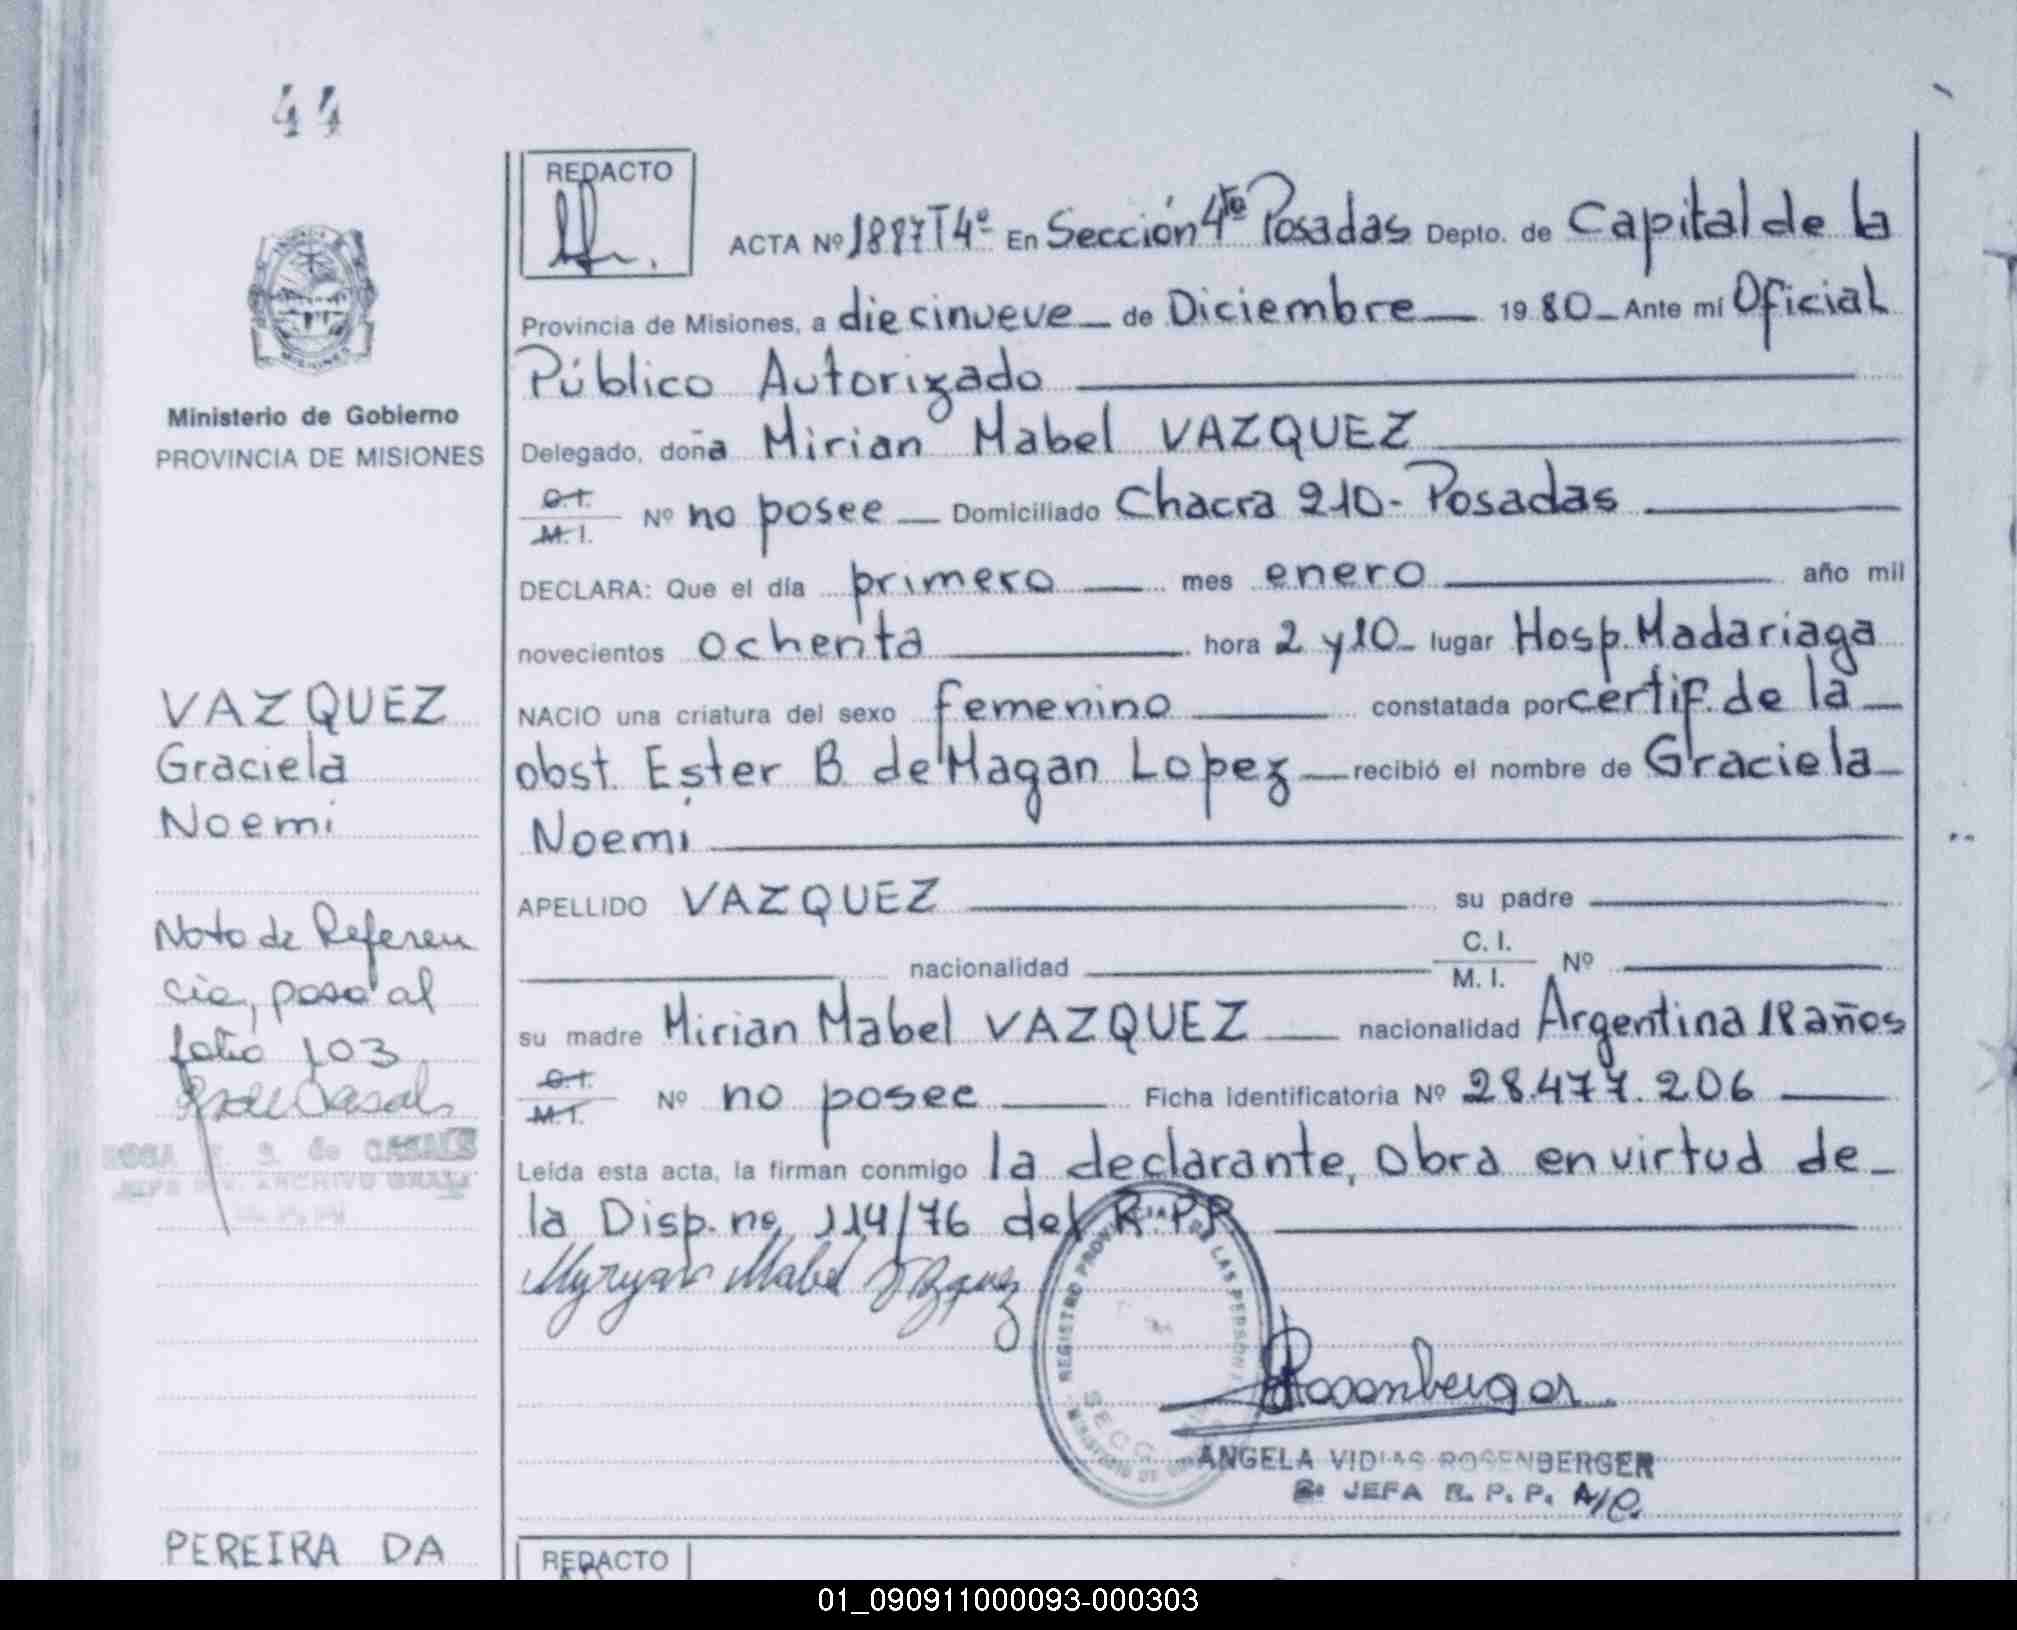 44
REDACTO
ACTA Nº 1887 T4º En Sección 4ta Posadas Depto. de Capital de la
Provincia de Misiones, a diecinueve de Diciembre 19 80 Ante mí Oficial
Público Autorizado
Delegado, doña Mirian Mabel VAZQUEZ
C.I. M.I. Nº no posee Domiciliado Chacra 210 - Posadas
DECLARA: Que el día primero mes enero año mil
novecientos ochenta hora 2 y 10 lugar Hosp. Madariaga
NACIO una criatura del sexo femenino constatada por certif. de la
obst. Ester B. de Magan Lopez recibió el nombre de Graciela
Noemi
APELLIDO VAZQUEZ su padre
nacionalidad C. I. M. I. Nº
su madre Mirian Mabel VAZQUEZ nacionalidad Argentina 18 años
C.I. M.I. Nº no posee Ficha identificatoria Nº 28.477.206
Leída esta acta, la firman conmigo la declarante, Obra en virtud de
la Disp. no. 114/76 del R.P.P.
Myryan Mabel Vazquez
REGISTRO PROVINCIAL DE LAS PERSONAS
SECC
Rosenberger
ANGELA VIDIAS ROSENBERGER
JEFA R. P. P. A/C.
Ministerio de Gobierno
PROVINCIA DE MISIONES
VAZQUEZ
Graciela
Noemi
Nota de Referen
cia, pasa al
folio 103
de CASALS
PEREIRA DA
REDACTO
01_090911000093-000303